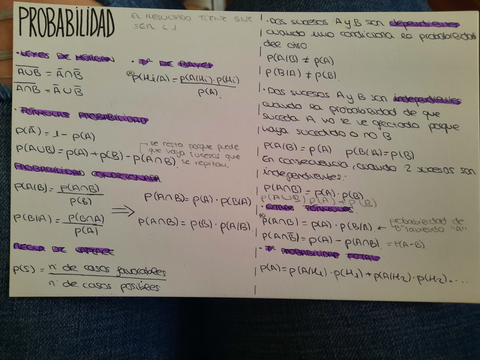 PROBABILIDAD
EL RESULTADO TIENE QUE
SER ≤ 1
· LEYES DE MORGAN
A̅U̅B̅ = A̅∩B̅
A̅∩̅B̅ = A̅UB̅
· Tª DE BAYES
p(Hi/A) = p(A/Hi)·p(Hi)
p(A)
p(A̅) = 1 - p(A)
p(AUB) = p(A) + p(B) - p(A∩B)
se resta porque puede
que haya sucesos que
se repitan.
PROBABILIDAD CONDICIONADA
p(A/B) = p(A∩B)
p(B)
p(B/A) = p(B∩A)
p(A)
⇒ p(A∩B) = p(A) · p(B/A)
p(A∩B) = p(B) · p(A/B)
REGLA DE LAPLACE
p(S) = nº de casos favorables
nº de casos posibles
· Dos sucesos A y B son dependientes
cuando uno condiciona la probabilidad
del otro
P(A/B) ≠ p(A)
P(B/A) ≠ p(B)
· Dos sucesos A y B son independientes
cuando la probabilidad de que
suceda A no se ve afectada porque
haya sucedido o no B
P(A/B) = P(A) P(B/A) = P(B)
En consecuencia, cuando 2 sucesos son
independientes:
P(A∩B) = p(A) · p(B)
p(AUB) = p(A) + p(B)
p(A∩B) = p(A) · p(B/A) ← probabilidad de
"B" habiendo "A"
p(A∩B̅) = p(A) - p(A∩B) = P(A-B)
· Tª PROBABILIDAD TOTAL
p(A) = p(A/H₁) · p(H₁) + p(A/H₂) · p(H₂) ...